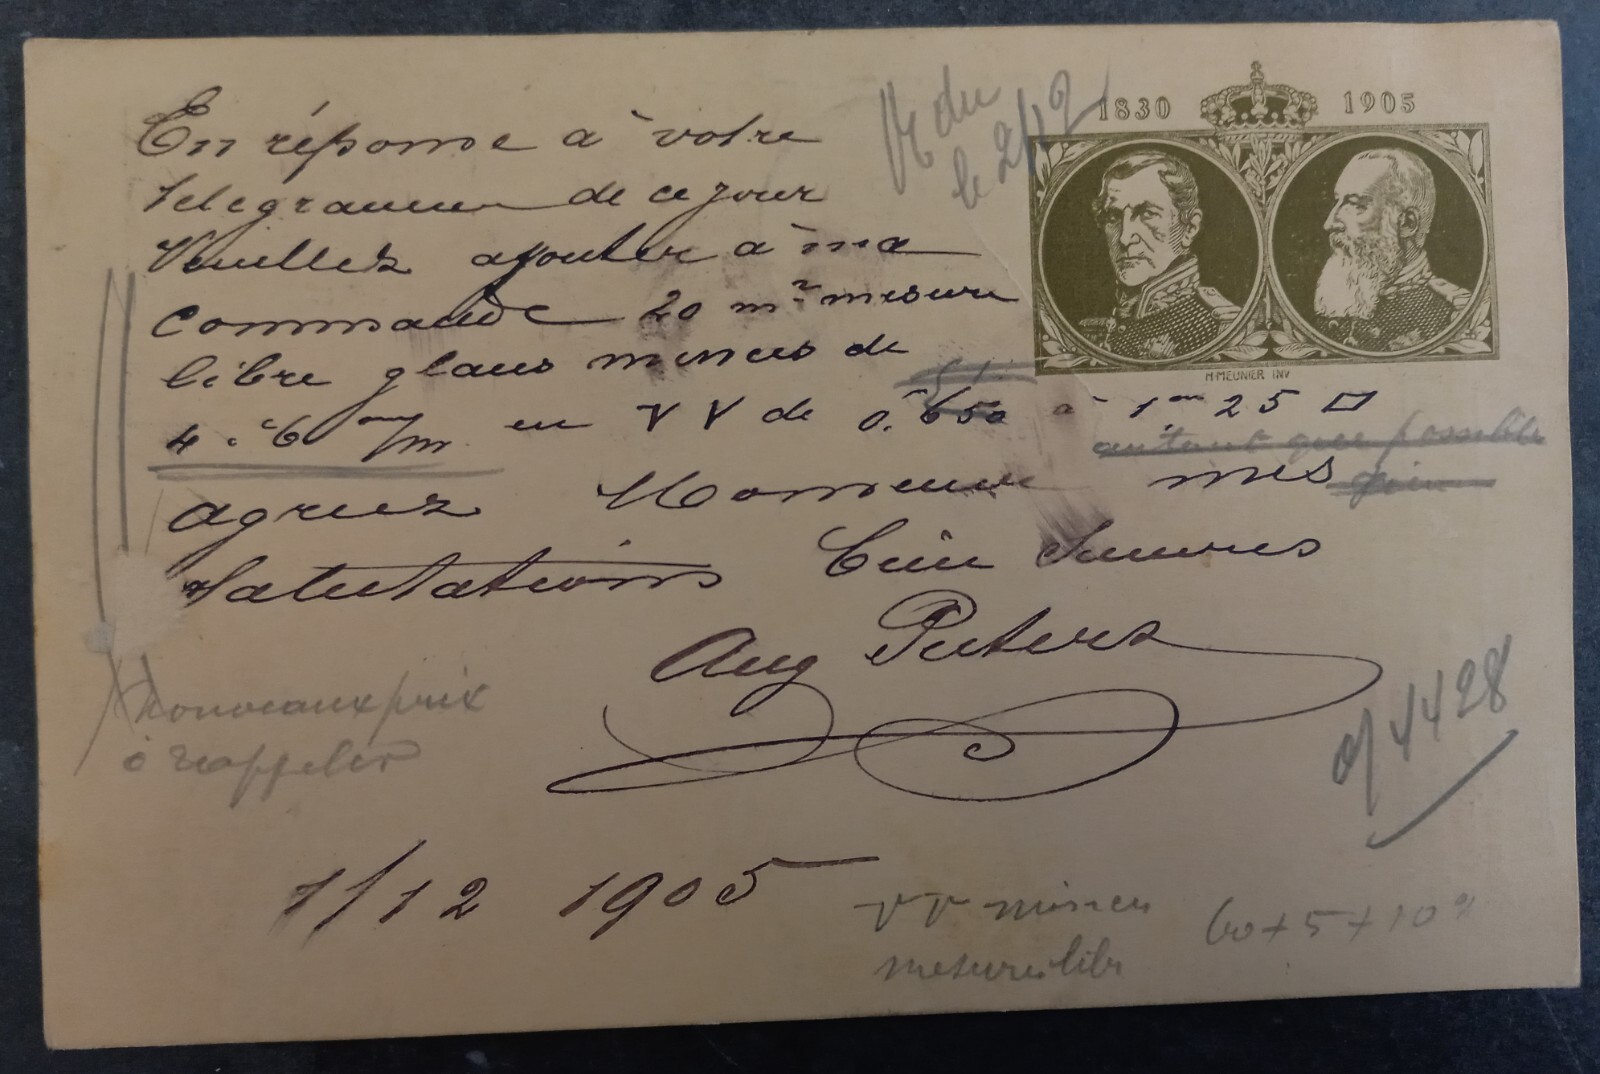 1830 1905
H. MEUNIER INV
En réponse à votre
telegramme de ce jour
Veuillez ajouter à ma
commande 20 m² mesure
libre glaces minces de
4 à 6 m/m en VV de 0.650 à 1m 25 □
autant que possible
agreez Monsieur mes
Salutations bien Sinceres
Aug Peeters
Nouveaux prix
à rappeler
o/ 4428
1/12 1905
VV minces
mesures libr
60 + 5 + 10 %
du
le 2/12